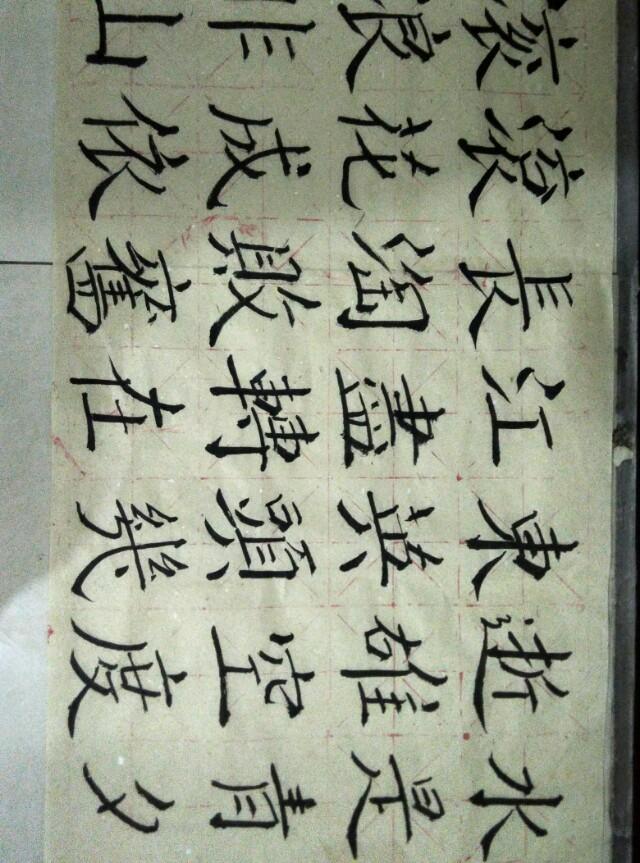 滾滾長江東逝水
浪花淘盡英雄是
非成敗轉頭空青
山依舊在幾度夕